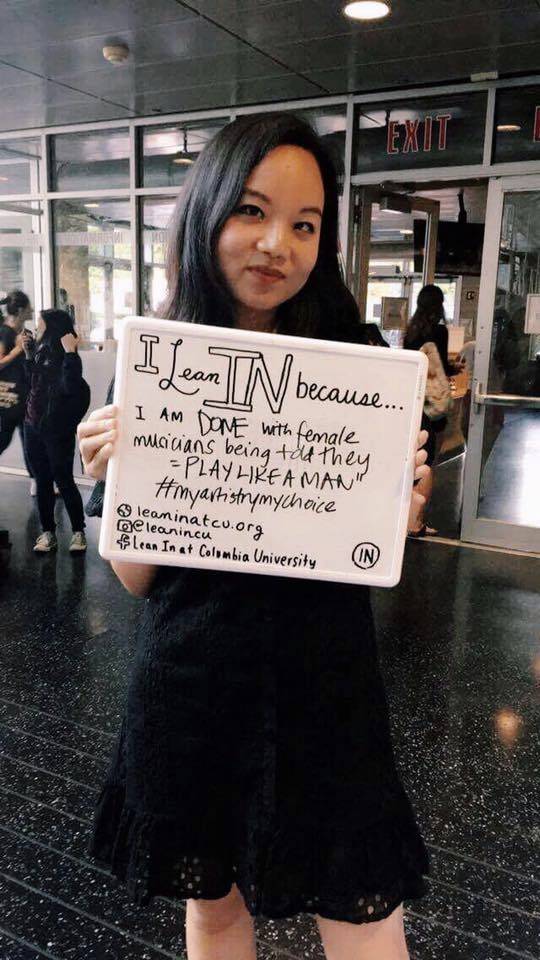 EXIT
I Lean IN because...
I AM DONE with female
musicians being told they
"PLAY LIKE A MAN"
#myartistrymychoice
leaninatcu.org
@leanincu
Lean In at Columbia University
IN